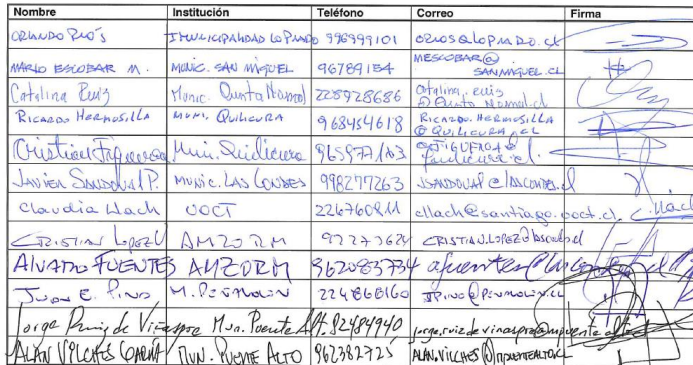 Nombre Institución Teléfono Correo Firma
ORLANDO RIOS I MUNICIPALIDAD LO PRADO 996999101 ORIOS@LOPRADO.CL
MARIO ESCOBAR M. MUNIC. SAN MIGUEL 96789154 MESCOBAR@
SANMIGUEL.CL
Catalina Ruiz Munic. Quinta Normal 228928686 Catalina.ruiz
@Quinta Normal.cl
RICARDO HERMOSILLA MUNI. QUILICURA 968454618 RICARDO.HERMOSILLA
@QUILICURA.CL
Cristian Figueroa Muni. Quilicura
JAVIER SANDOVAL P. MUNIC. LAS CONDES 998277263 JSANDOVAL@LASCONDES.cl
Claudia Llach OOCT cllach@santiago.ooct.cl C. Llach
CRISTIAN LOPEZ AMZORM
ALVARO FUENTES AMZORM 962083734
JUAN E. PINO M. PEÑALOLEN 224868160 JPINO@PENALOLEN.CL
Jorge Ruiz de Viñaspre Mun. Puente Alt. 92484940
ALAN VILCHES MUN. PUENTE ALTO 962382725 ALAN.VILCHES@MPUENTEALTO.CL